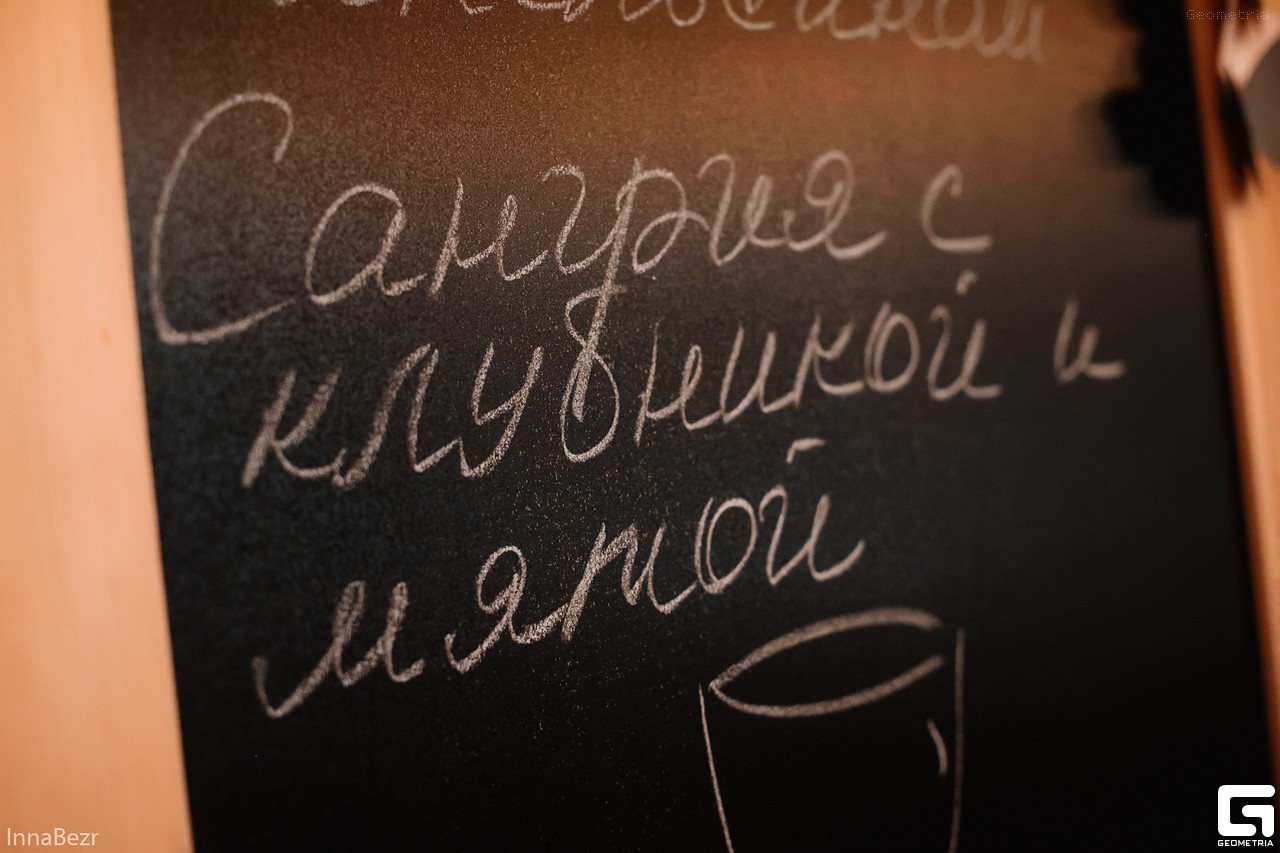 Geometria
Сангрия с
клубникой и
мятой
InnaBezr
GEOMETRIA